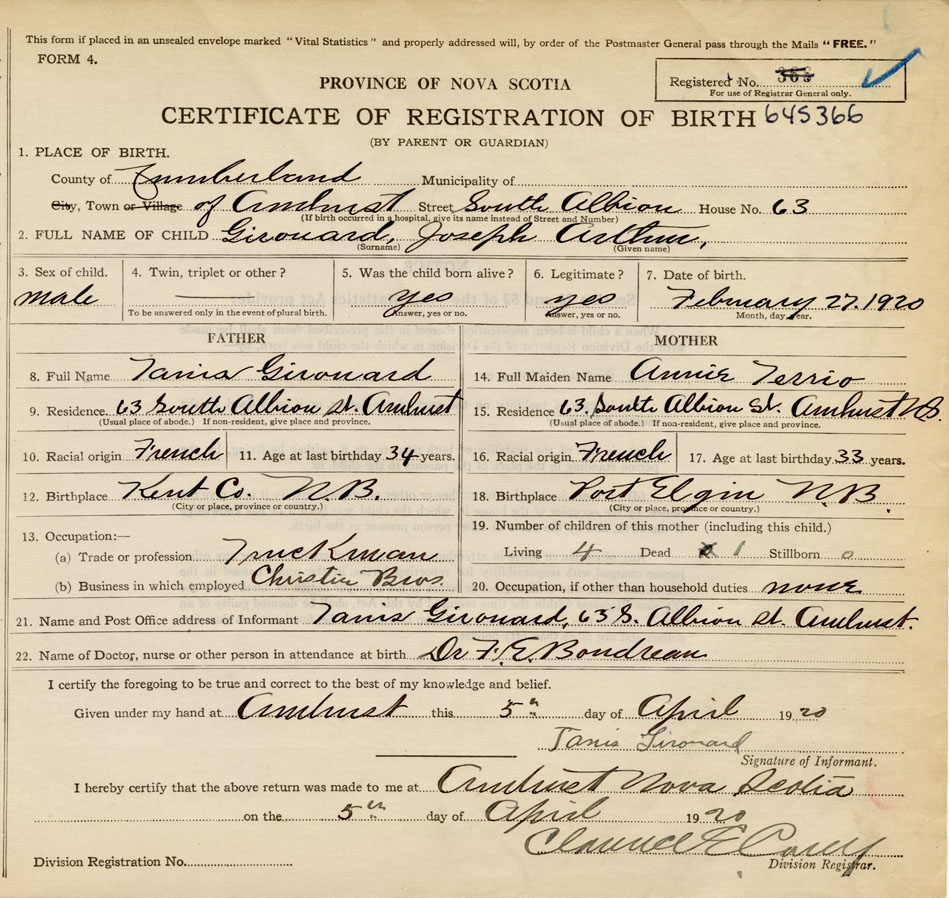 This form if placed in an unsealed envelope marked "Vital Statistics" and properly addressed will, by order of the Postmaster General pass through the Mails "FREE."
FORM 4.
PROVINCE OF NOVA SCOTIA
Registered No. 363
For use of Registrar General only.
CERTIFICATE OF REGISTRATION OF BIRTH 645366
(BY PARENT OR GUARDIAN)
1. PLACE OF BIRTH.
County of Cumberland Municipality of
City, Town or Village of Amhurst Street South Albion House No. 63
(If birth occurred in a hospital, give its name instead of Street and Number)
2. FULL NAME OF CHILD Girouard, Joseph Arthur,
(Surname) (Given name)
3. Sex of child. 4. Twin, triplet or other? 5. Was the child born alive? 6. Legitimate? 7. Date of birth.
male — yes yes February 27. 1920
To be answered only in the event of plural birth. Answer, yes or no. Answer, yes or no. Month, day, year.
FATHER MOTHER
8. Full Name Tanis Girouard 14. Full Maiden Name Annie Terrio
9. Residence 63 South Albion St. Amhurst 15. Residence 63. South Albion St. Amhurst N.S.
(Usual place of abode.) If non-resident, give place and province. (Usual place of abode.) If non-resident, give place and province.
10. Racial origin French 11. Age at last birthday 34 years. 16. Racial origin French 17. Age at last birthday 33 years.
12. Birthplace Kent Co. N.B. 18. Birthplace Port Elgin N.B
(City or place, province or country.) (City or place, province or country.)
13. Occupation:— 19. Number of children of this mother (including this child.)
(a) Trade or profession Truckman Living 4 Dead 1 Stillborn 0
(b) Business in which employed Christie Bros. 20. Occupation, if other than household duties none
21. Name and Post Office address of Informant Tanis Girouard, 63 S. Albion St. Amhurst.
22. Name of Doctor, nurse or other person in attendance at birth Dr F. E. Boudreau
I certify the foregoing to be true and correct to the best of my knowledge and belief.
Given under my hand at Amhurst this 5th day of April 1920
Tanis Girouard
Signature of Informant.
I hereby certify that the above return was made to me at Amhurst Nova Scotia
on the 5th day of April 1920
Clarence E
Division Registration No. Division Registrar.